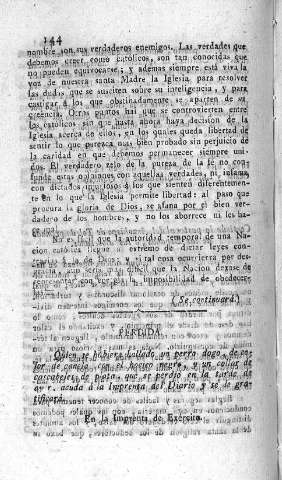 144
nombre son sus verdaderos enemigos. Las verdades que
debemos creer como católicos, son tan conocidas que
no pueden equivocarse; y ademas siempre está viva la
voz de nuestra santa Madre la Iglesia, para resolver
las dudas que se susciten sobre su inteligencia, y para
castigar á los que obstinadamente se aparten de su
creencia. Otros puntos hai que se controvierten entre
los católicos, sin que hasta ahora haya decision de la
Iglesia acerca de ellos, en los quales queda libertad de
sentir lo que parezca mas bien probado sin perjuicio de
la caridad en que debemos permanecer siempre uni-
dos. El verdadero zelo de la pureza de la fé no con-
funde estas opiniones con aquellas verdades, ni
con dictados injuriosos á los que sienten diferentemen-
te en lo que la Iglesia permite libertad: al paso que
procura la gloria de Dios, se afana por el bien verda-
dero de los hombres, y no los aborrece ni les ha-
No es facil que la autoridad temporal de una Na-
cion católica llegue al extremo de dictar leyes con-
trarias á la de Dios; y si tal cosa ocurriera por des-
gracia, aun sería mas dificil que la Nacion dexase de
representar con vigor la imposibilidad de obedecer-
(Se continuará.)
PÉRDIDA.
Quien se hubiere hallado un perro dogo, de co-
lor de canela, con el hocico negro, y un collar de
cascabeles de plata, que se perdió en la tarde de
ayer, acuda á la Imprenta del Diario y se le gra-
tificará.
En la Imprenta de Exército.